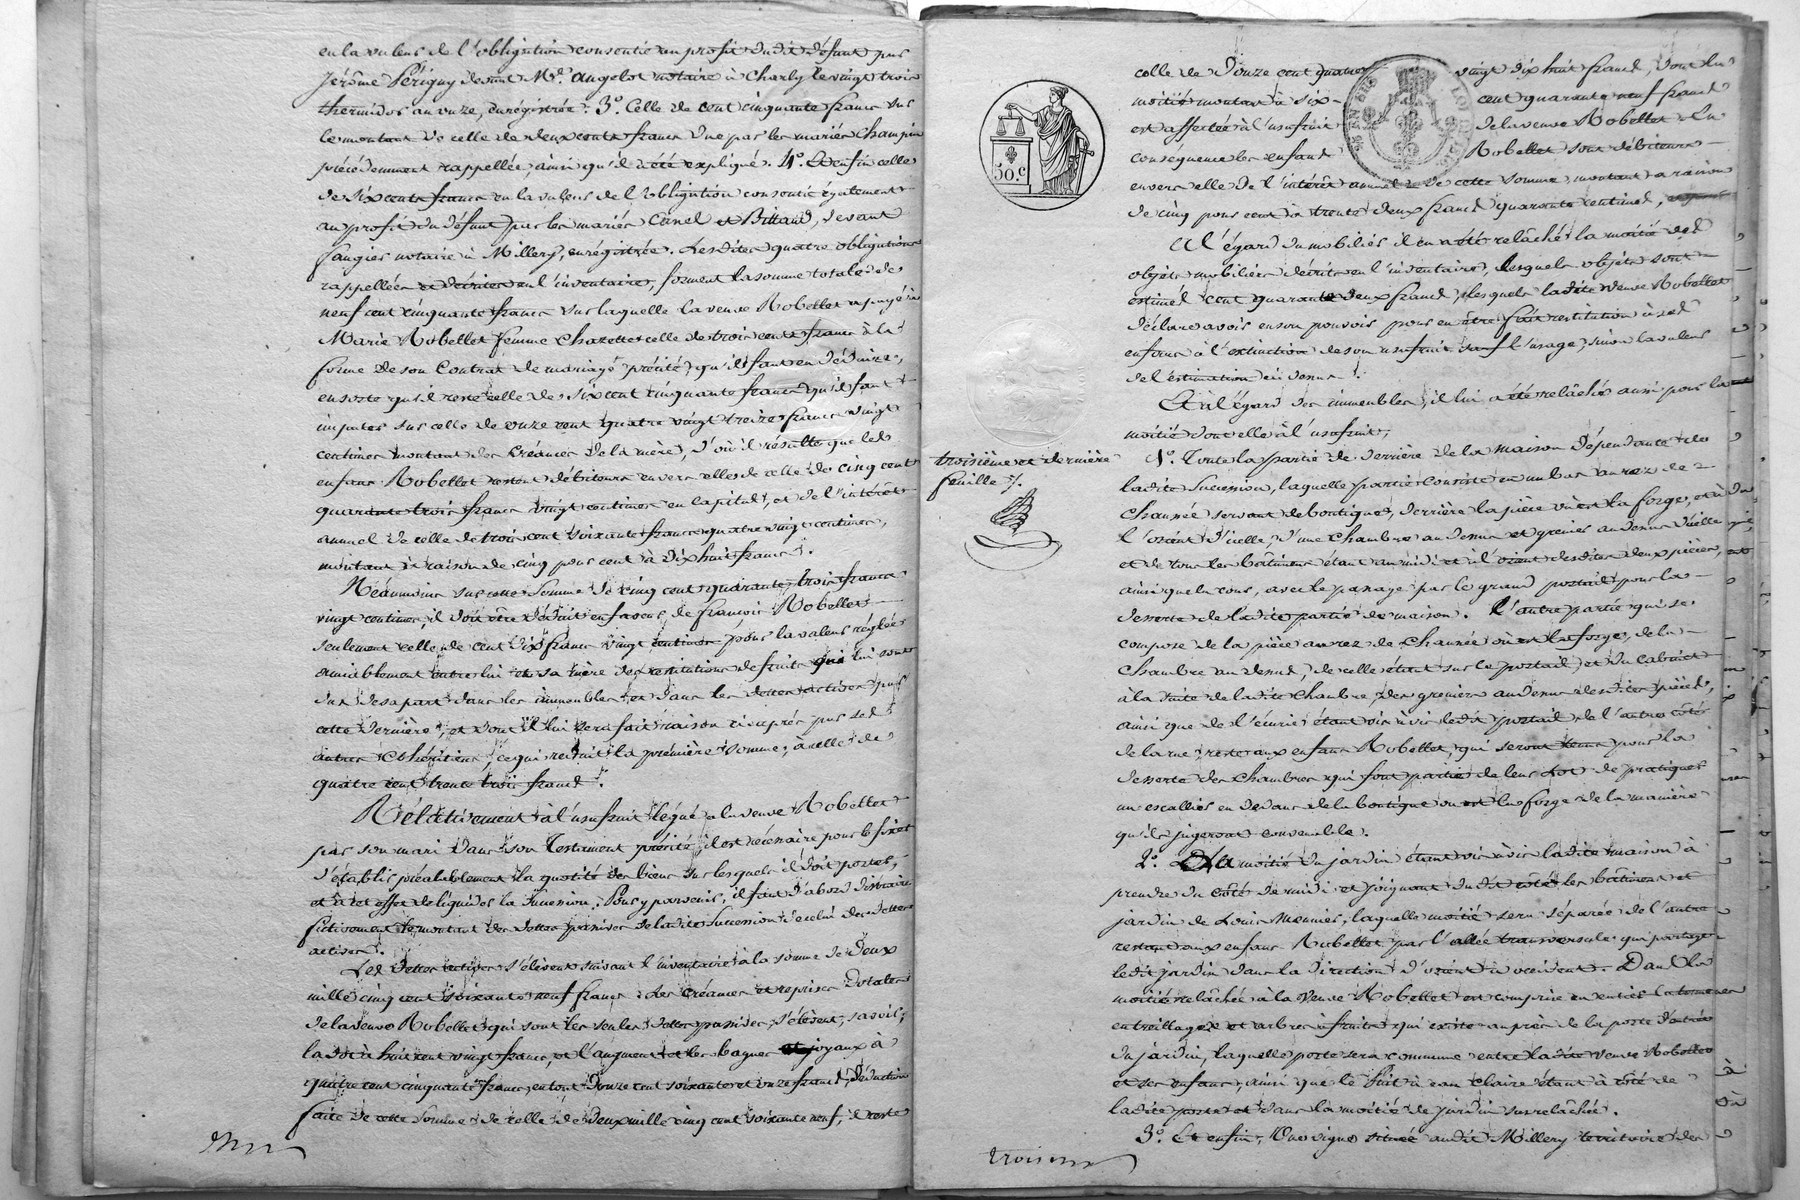 en la valeur de l'obligation consentie au profit du dit défunt par
Jérôme Périgny devant Me. Angelot notaire à Charly le vingt trois
thermidor an onze, enregistrée. 3º. Celle de cent cinquante francs sur
le montant de celle de deux cents francs due par les mariés Champin
précédemment rappellée, ainsi qu'il a été expliqué. 4º. Et enfin celle
de six cents francs en la valeur de l'obligation consentie également
au profit du défunt par les mariés Canel et Billaud, devant
Faugier notaire à Millery, enregistrée. Lesdites quatre obligations
rappellées et décrites en l'inventaire, forment la somme totale de
neuf cent cinquante francs sur laquelle la veuve Robellet a payé à
Marie Robellet femme Chazette celle de trois cents francs à la
forme de son Contrat de mariage précité, qu'il faut en déduire,
ensorte qu'il reste celle de six cent cinquante francs qu'il faut
imputer sur celle de onze cent quatre vingt treize francs vingt
centimes montant des Créances de la mère, d'où il résulte que les
enfans Robellet restent débiteurs envers elle de celle de cinq cent
quarante trois francs vingt centimes en capital, et de l'intérêt
annuel de celle de trois cent soixante francs quatre vingt centimes,
montant à raison de cinq pour cent à dix huit francs.
Néanmoins sur cette somme de cinq cent quarante trois francs
vingt centimes il doit être déduit en faveur de françois Robellet
seulement celle de cent dix francs vingt centimes pour la valeur réglée
amiablement entre lui et sa mère des restitutions de fruits qui lui sont
dus de sa part dans les immeubles et dans les dettes actives par
cette dernière, et dont il lui sera fait raison ci après par ses
autres Cohéritiers, ce qui reduit la première somme, à celle de
quatre cent trente trois francs.
Rélativement à l'usufruit légué à la veuve Robellet
par son mari dans son Testament précité il est nécessaire pour le fixer
d'établir préalablement la quotité des biens sur lesquels il doit porter,
et à cet effet de liquider la succession. Pour y parvenir, il faut d'abord distraire
fictivement le montant des dettes passives de la dite succession d'celui des dettes
actives.
Les dettes actives s'élèvent suivant l'inventaire à la somme de deux
mille cinq cent soixante neuf francs. Les créances et reprises dotales
de la veuve Robellet qui sont les seules dettes passives, s'élèvent, savoir,
la dot à huit cent vingt francs, et l'augment et les bagues et joyaux à
quatre cent cinquante francs, en tout douze cent soixante et onze francs, déduction
faite de cette somme de celle de deux mille cinq cent soixante neuf, il reste
celle de douze cent quatre vingt dix huit francs, dont la
moitié montant à six cent quarante neuf francs
est affectée à l'usufruit de la veuve Robellet. En
conséquence les enfans Robellet sont débiteurs
envers elle de l'intérêt annuel de cette somme, montant à raison
de cinq pour cent à trente deux francs quarante centimes,
A l'égard du mobilier il en a été relâché la moitié des
objets mobiliers décrits en l'inventaire, lesquels objets sont
estimés cent quarante deux francs, lesquels la dite veuve Robellet
déclare avoir en son pouvoir pour en être fait restitution à ses
enfans à l'extinction de son usufruit sauf l'usage, sinon la valeur
de l'estimation ci dessus.
Et à l'égard des immeubles, il lui a été relâché aussi pour la
moitié dont elle à l'usufruit,
troisième et dernière
feuille
1º. Toute la partie de derrière de la maison dépendante de
ladite succession, laquelle partie consiste en un bas au rez de
chaussée servant de boutique, derrière la pièce où est la forge, et à
l'orient d'icelle, d'une chambre au dessus et grenier au dessus d'icelle
et de tous les bâtimens étant au midi et à l'orient desdites deux pièces,
ainsi que la cour, avec le passage par le grand portail pour la
desserte de ladite partie de maison. L'autre partie qui se
compose de la pièce au rez de chaussée où est la forge, de la
chambre au dessus, de celle étant sur le portail, et du cabinet
à la suite de ladite chambre, des greniers au dessus desdites pièces,
ainsi que de l'écurie étant vis à vis ledit portail de l'autre côté
de la rue, reste aux enfans Robellet, qui seront tenus pour la
desserte des chambres qui font partie de leur lot de pratiquer
un escallier en dedans de la boutique où est la forge de la manière
qu'ils jugeront convenable.
2º. La moitié du jardin étant vis à vis ladite maison à
prendre du côté de midi et joignant du dit côté les bâtimens et
jardin de Louis Meunier, laquelle moitié sera séparée de l'autre
restant aux enfans Robellet par l'allée transversale qui partage
ledit jardin dans la direction d'orient à occident. Dans la
moitié relâchée à la veuve Robellet est comprise en entier la tonne
en treillages et arbres à fruits qui existe auprès de la porte d'entrée
du jardin, laquelle porte sera commune entre ladite veuve Robellet
et ses enfans, ainsi que le puit à eau claire étant à côté de
ladite porte et dans la moitié de jardin sus relâchée.
3º. Et enfin, Une vigne située audit Millery territoire des
50.c